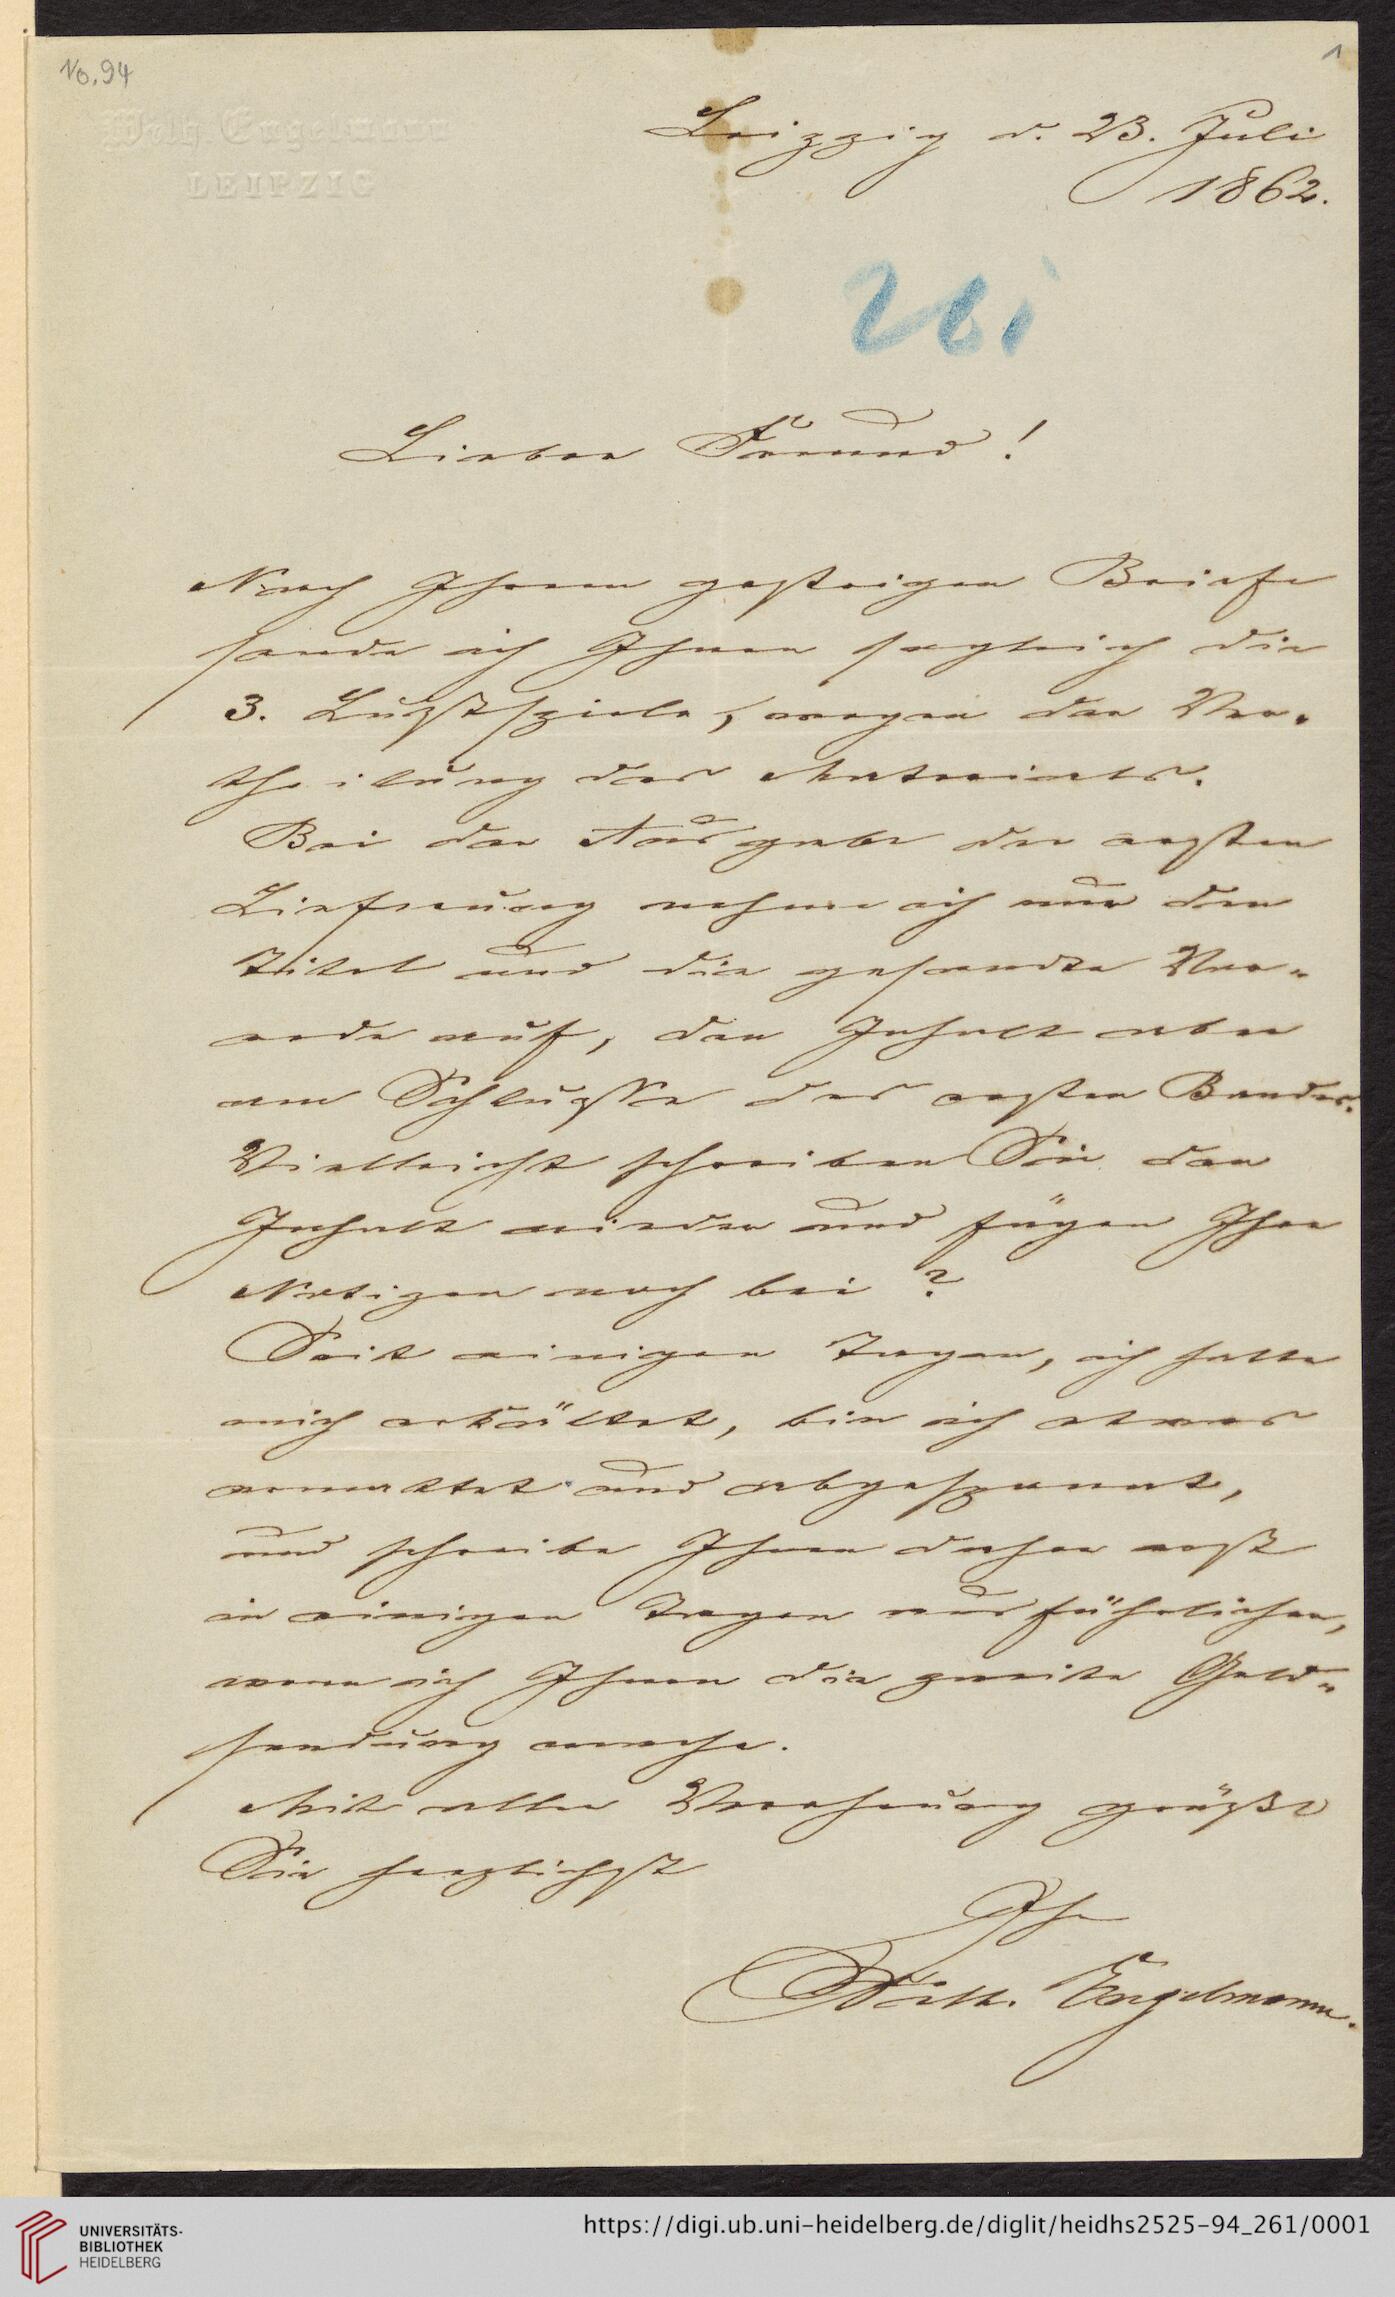 No. 94
1
Wilh Engelmann
LEIPZIG
Leipzig d. 23. Juli
1862.
261
Lieber Freund!
Nach Ihrem gestrigen Briefe
sende ich Ihnen sogleich die
3. Lustspiele, wegen der Ver-
theilung des Materials.
Bei der Ausgabe der ersten
Lieferung nehme ich nur den
Titel und die gesandte Vor-
rede auf, den Inhalt aber
am Schlusse des ersten Bandes.
Vielleicht schreiben Sie den
Inhalt nieder und fügen Ihre
Notizen noch bei?
Seit einigen Tagen, ich hatte
mich erkältet, bin ich etwas
ermattet und abgespannt,
und schreibe Ihnen daher erst
in einigen Tagen ausführlicher,
wenn ich Ihnen die zweite Geld-
sendung mache.
Mit aller Verehrung grüßt
Sie herzlichst
Ihr
Wilh. Engelmann.
UNIVERSITÄTS-
BIBLIOTHEK
HEIDELBERG
https://digi.ub.uni-heidelberg.de/diglit/heidhs2525-94_261/0001